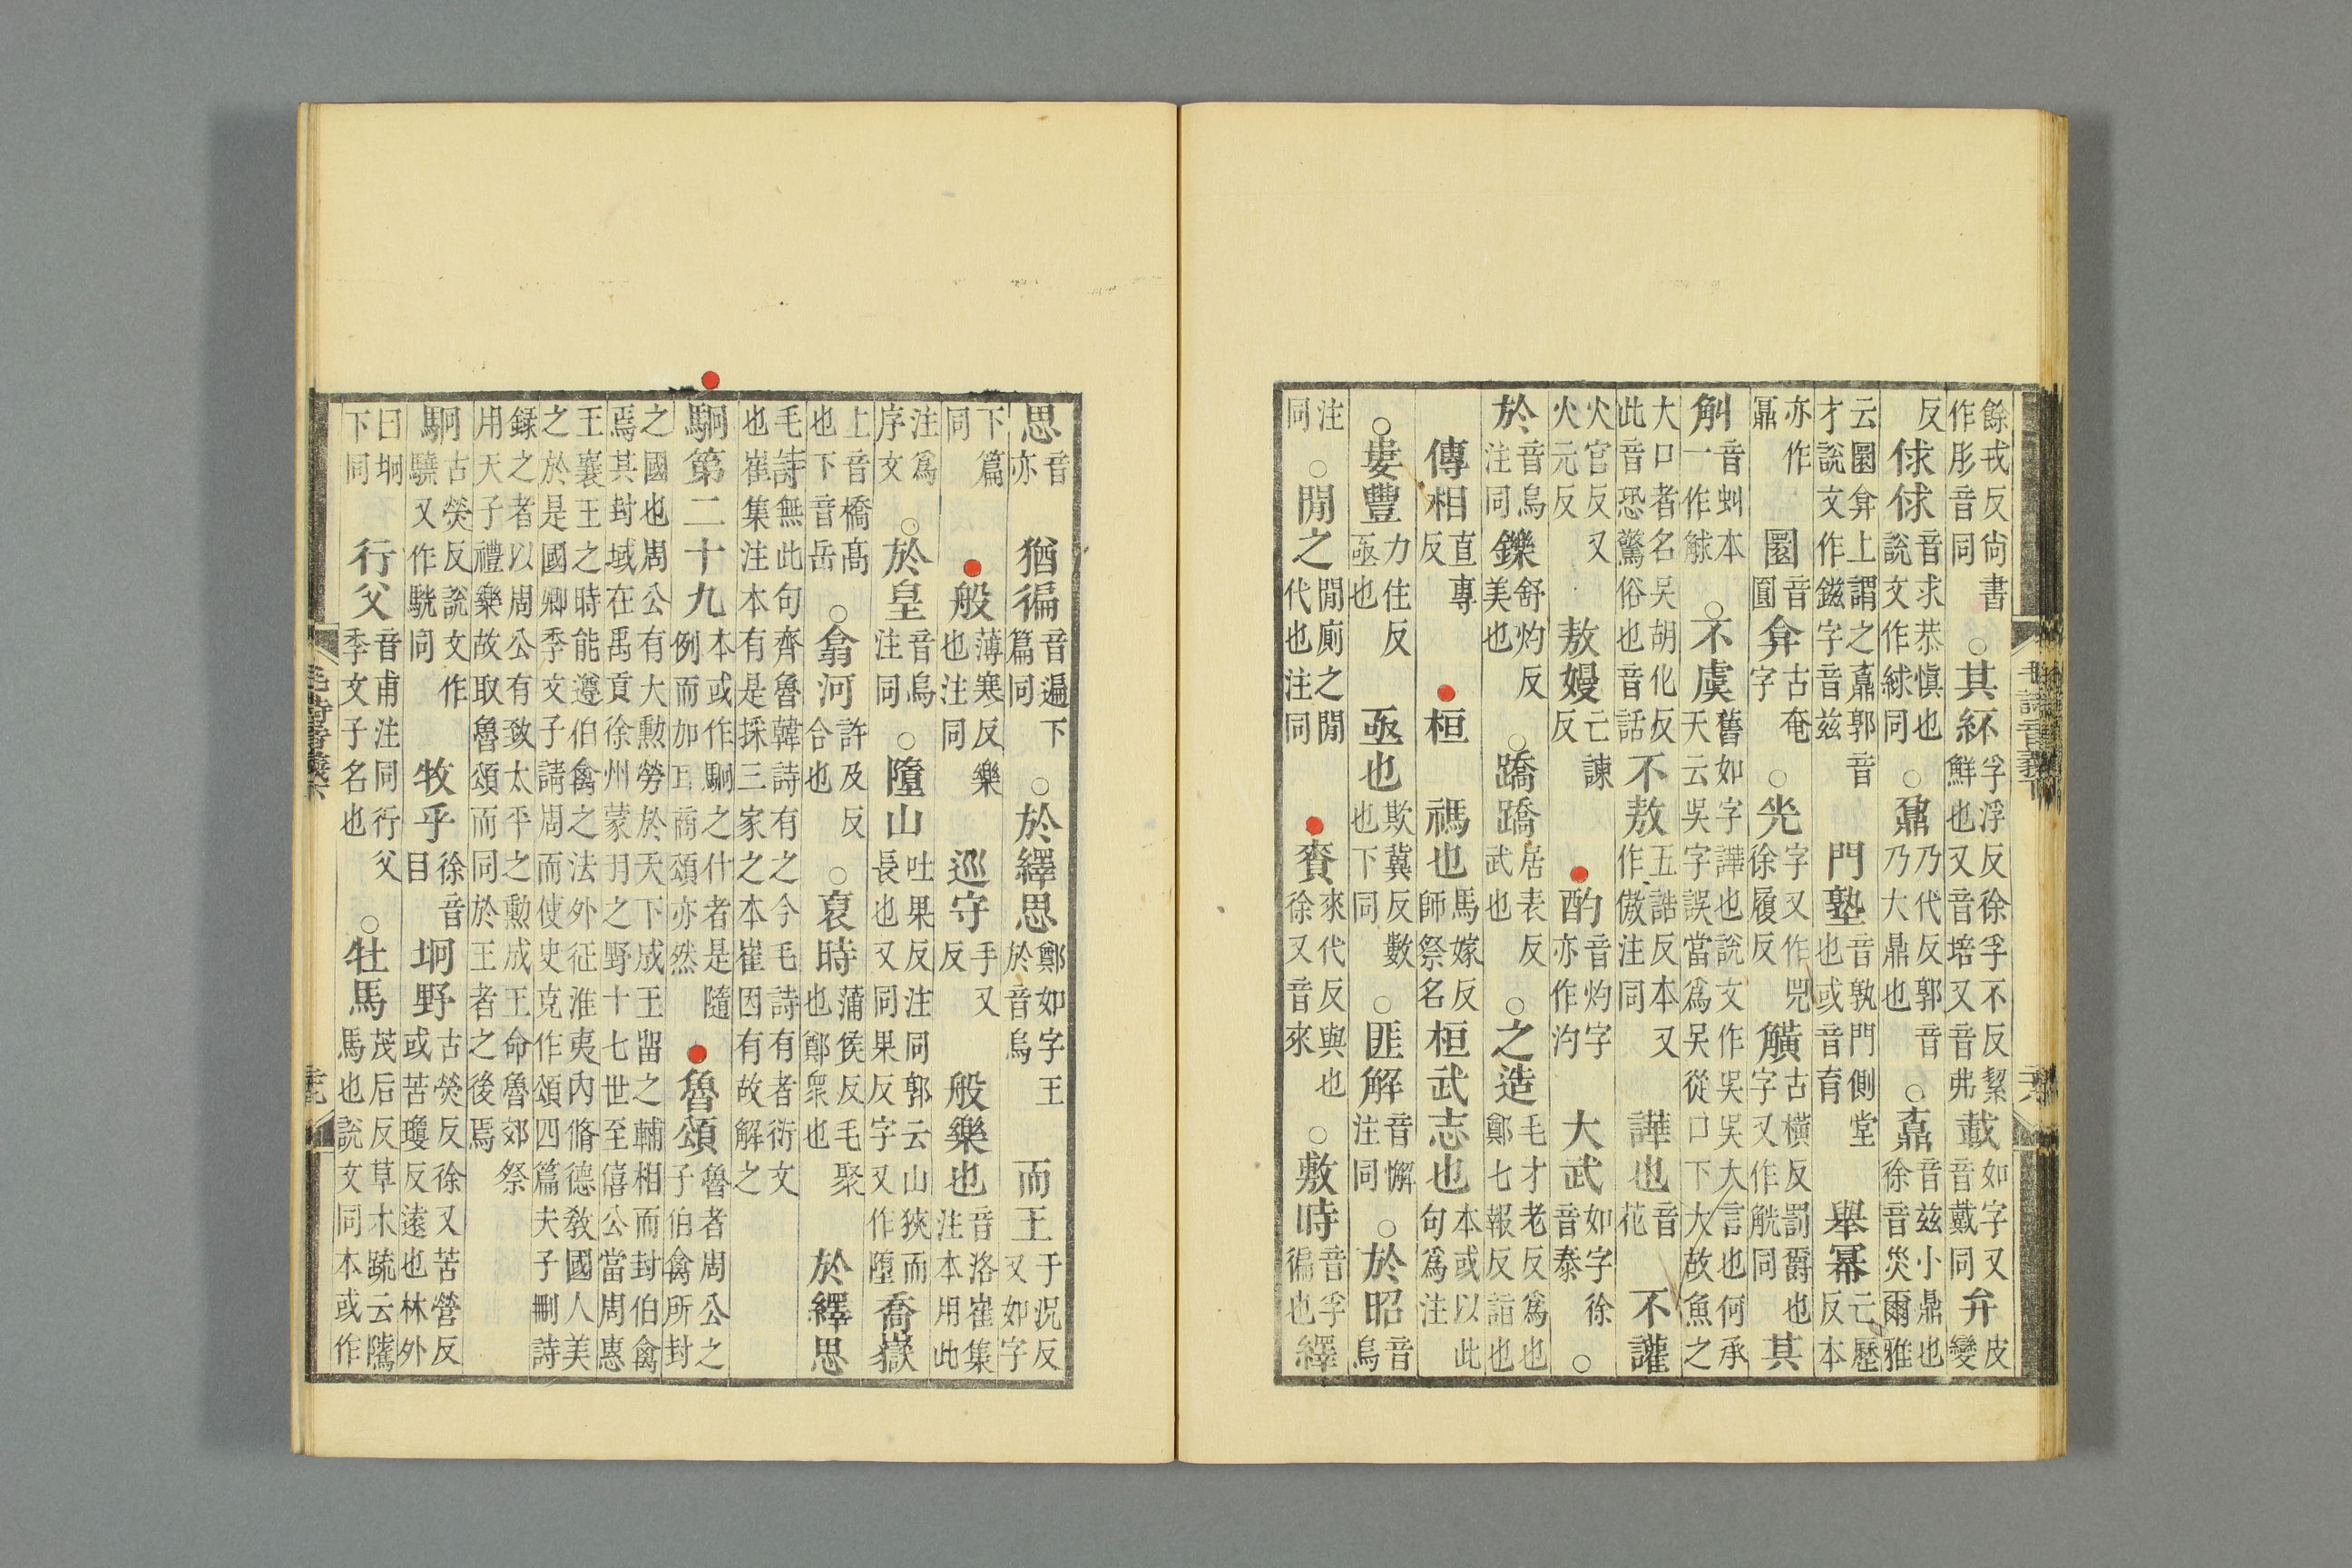 毛詩音義下
六
餘戎反尚書作肜音同○其紑孚浮反徐孚不反絜鮮也又音培又音弗載如字又音戴同弁皮變
反俅俅音求恭愼也說文作絿同○鼐乃代反郭音乃大鼎也○鼒音兹小鼎也徐音災爾雅
云圜弇上謂之鼒郭音才說文作鎡字音兹門塾音孰門側堂也或音育舉冪亡歷反本
亦作鼏圜音圓弇古奄字○兕字又作兕徐履反觵古橫反罰爵也字又作觥同其
觓音虯本一作觩○不虞舊如字譁也說文作吳吳大言也何承天云吳字誤當爲吴從口下大故魚之
大口者名吴胡化反此音恐驚俗也音話不敖五誥反本又作傲注同譁也音花不讙
火官反又火元反敖嫚亡諫反酌音灼字亦作汋大武如字徐音泰○
於音烏注同鑠舒灼反美也○蹻蹻居表反武也○之造毛才老反爲也鄭七報反詣也
傳相直專反桓禡也馬嫁反師祭名桓武志也本或以此句爲注
○婁豐力住反亟也亟也欺冀反數也下同○匪解音懈注同○於昭音烏
注同○閒之閒廁之閒代也注同賚來代反與也徐又音來○敷時音孚徧也繹
思音亦猶徧音遍下篇同○於繹思鄭如字王於音烏而王于況反又如字
下篇同般薄寒反樂也注同巡守手又反般樂也音洛崔集注本用此
注爲序文○於皇音烏注同○墮山吐果反注同郭云山狹而長也又同果反字又作墮喬嶽
上音橋高也下音岳○翕河許及反合也○裒時蒲侯反毛聚也鄭衆也於繹思
毛詩無此句齊魯韓詩有之今毛詩有者衍文也崔集注本有是採三家之本崔因有故解之
駉第二十九本或作駉之什者是隨例而加耳商頌亦然魯頌魯者周公之子伯禽所封
之國也周公有大勳勞於天下成王留之輔相而封伯禽焉其封域在禹貢徐州蒙羽之野十七世至僖公當周惠
王襄王之時能遵伯禽之法外征淮夷內脩德敎國人美之於是國卿季文子請周而使史克作頌四篇夫子刪詩
錄之者以周公有致太平之勳成王命魯郊祭用天子禮樂故取魯頌而同於王者之後焉
駉古熒反說文作驍又作駫同牧乎徐音目坰野古熒反徐又苦營反或苦瓊反遠也林外
曰坰下同行父音甫注同行父季文子名也○牡馬茂后反草木疏云騭馬也說文同本或作